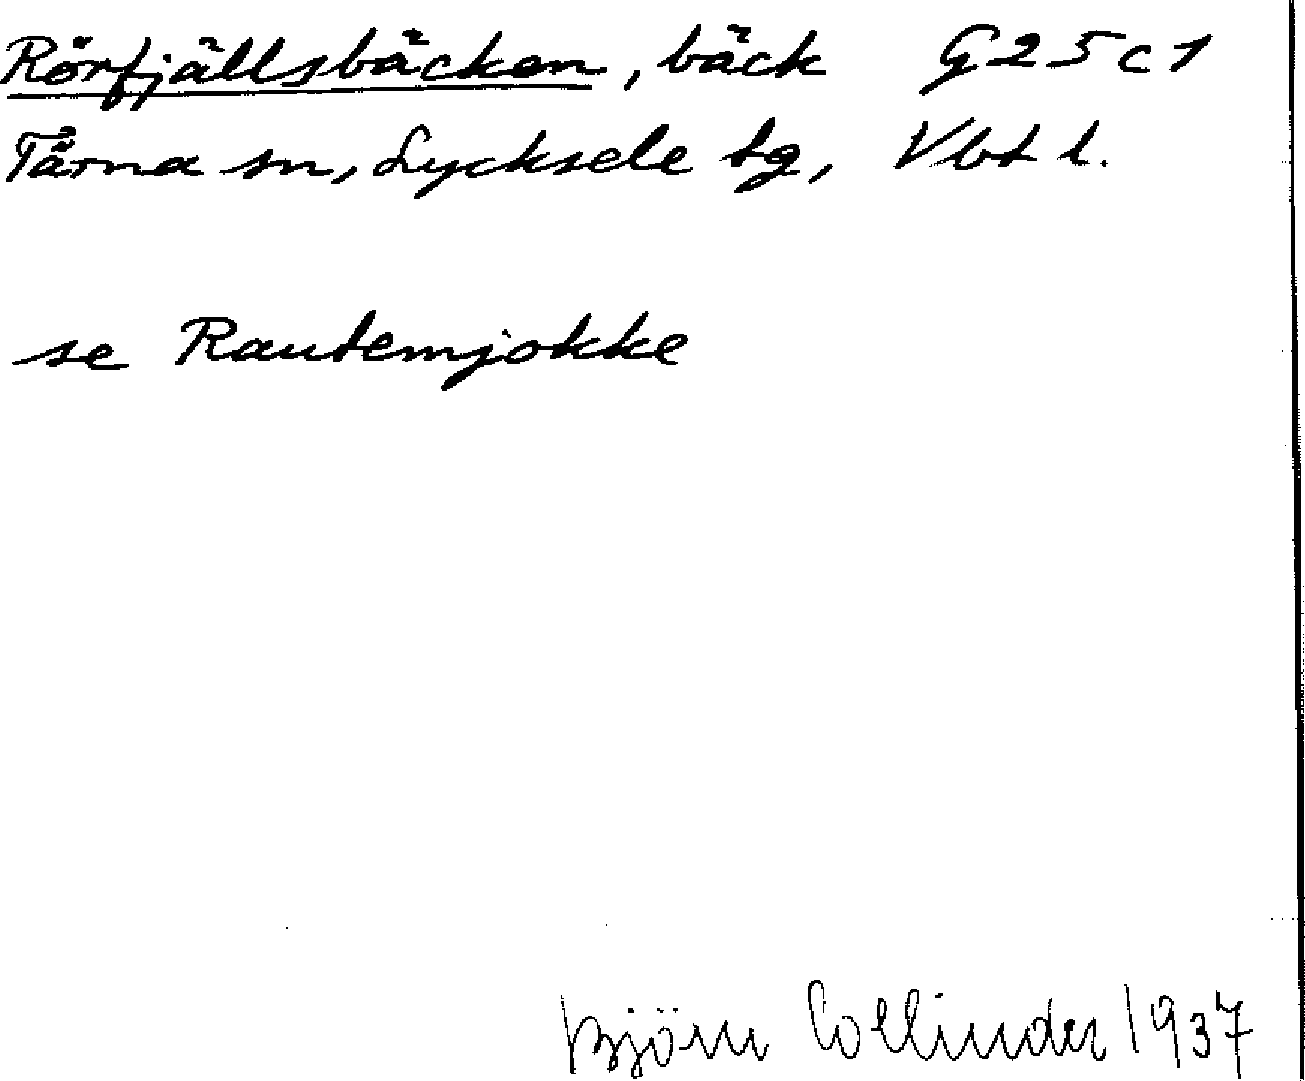 Rörfjällsbäcken, bäck G25c1
Tärna sn, Lycksele tg, Vbt l.
se Rautemjokke
Björn Collinder 1937